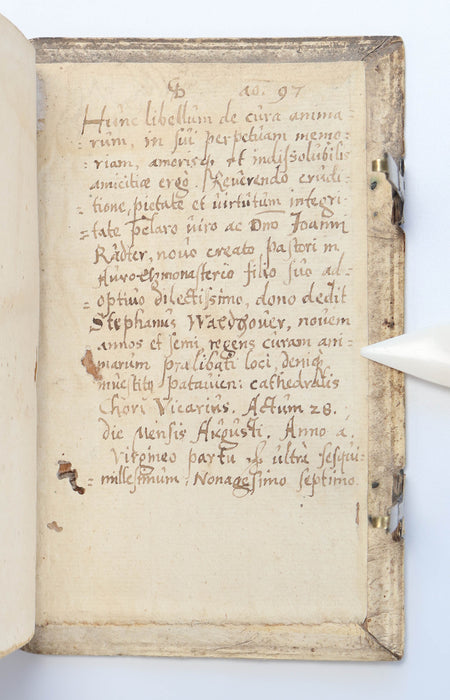 ao. 97
Hunc libellum de cura anima=
=rum, in sui perpetuam memo=
=riam, amorisq et indissolubilis
amicitiæ ergò. Reverendo erudi=
=tione, pietate et virtutum integri=
=tate pclaro viro ac Dno Joanni
Rädter, novo creato pastori in
monasterio filio suo ad=
=optivo dilectissimo, dono dedit
Stephanus novem
annos et semi, regens curam ani=
=marum prælibati loci, deniq
patavien: cathedralis
Chori Vicarius. Actum 28.
die Mensis Augusti. Anno a
Virgineo partu ultrà sesqui=
=millesimum Nonagesimo septimo.